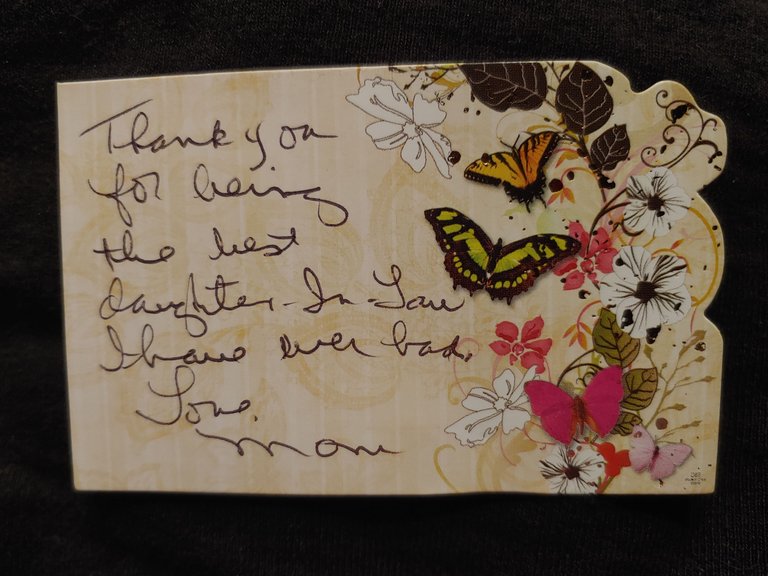 Thank you
for being
the best
daughter-In-Law
I have ever had.
Love,
Mom